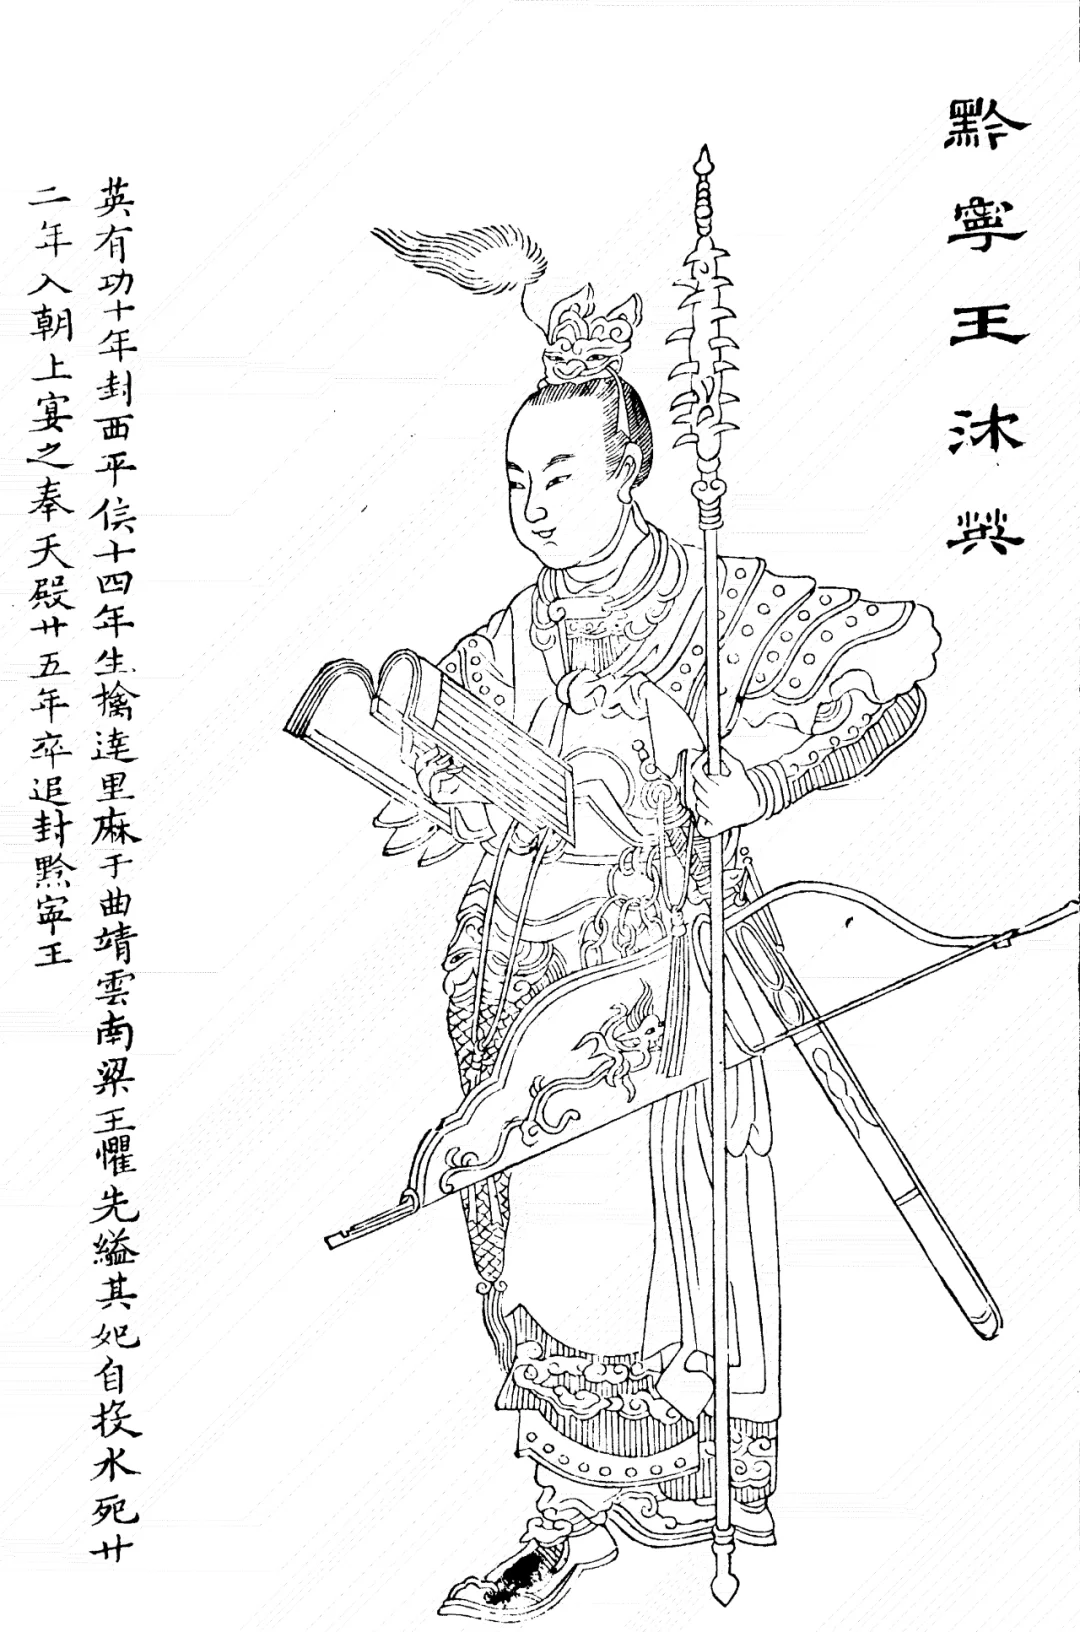 黔寧王沐英
英有功十年封西平侯十四年生擒達里麻于曲靖雲南梁王懼先縊其妃自投水死廿
二年入朝上宴之奉天殿廿五年卒追封黔寧王